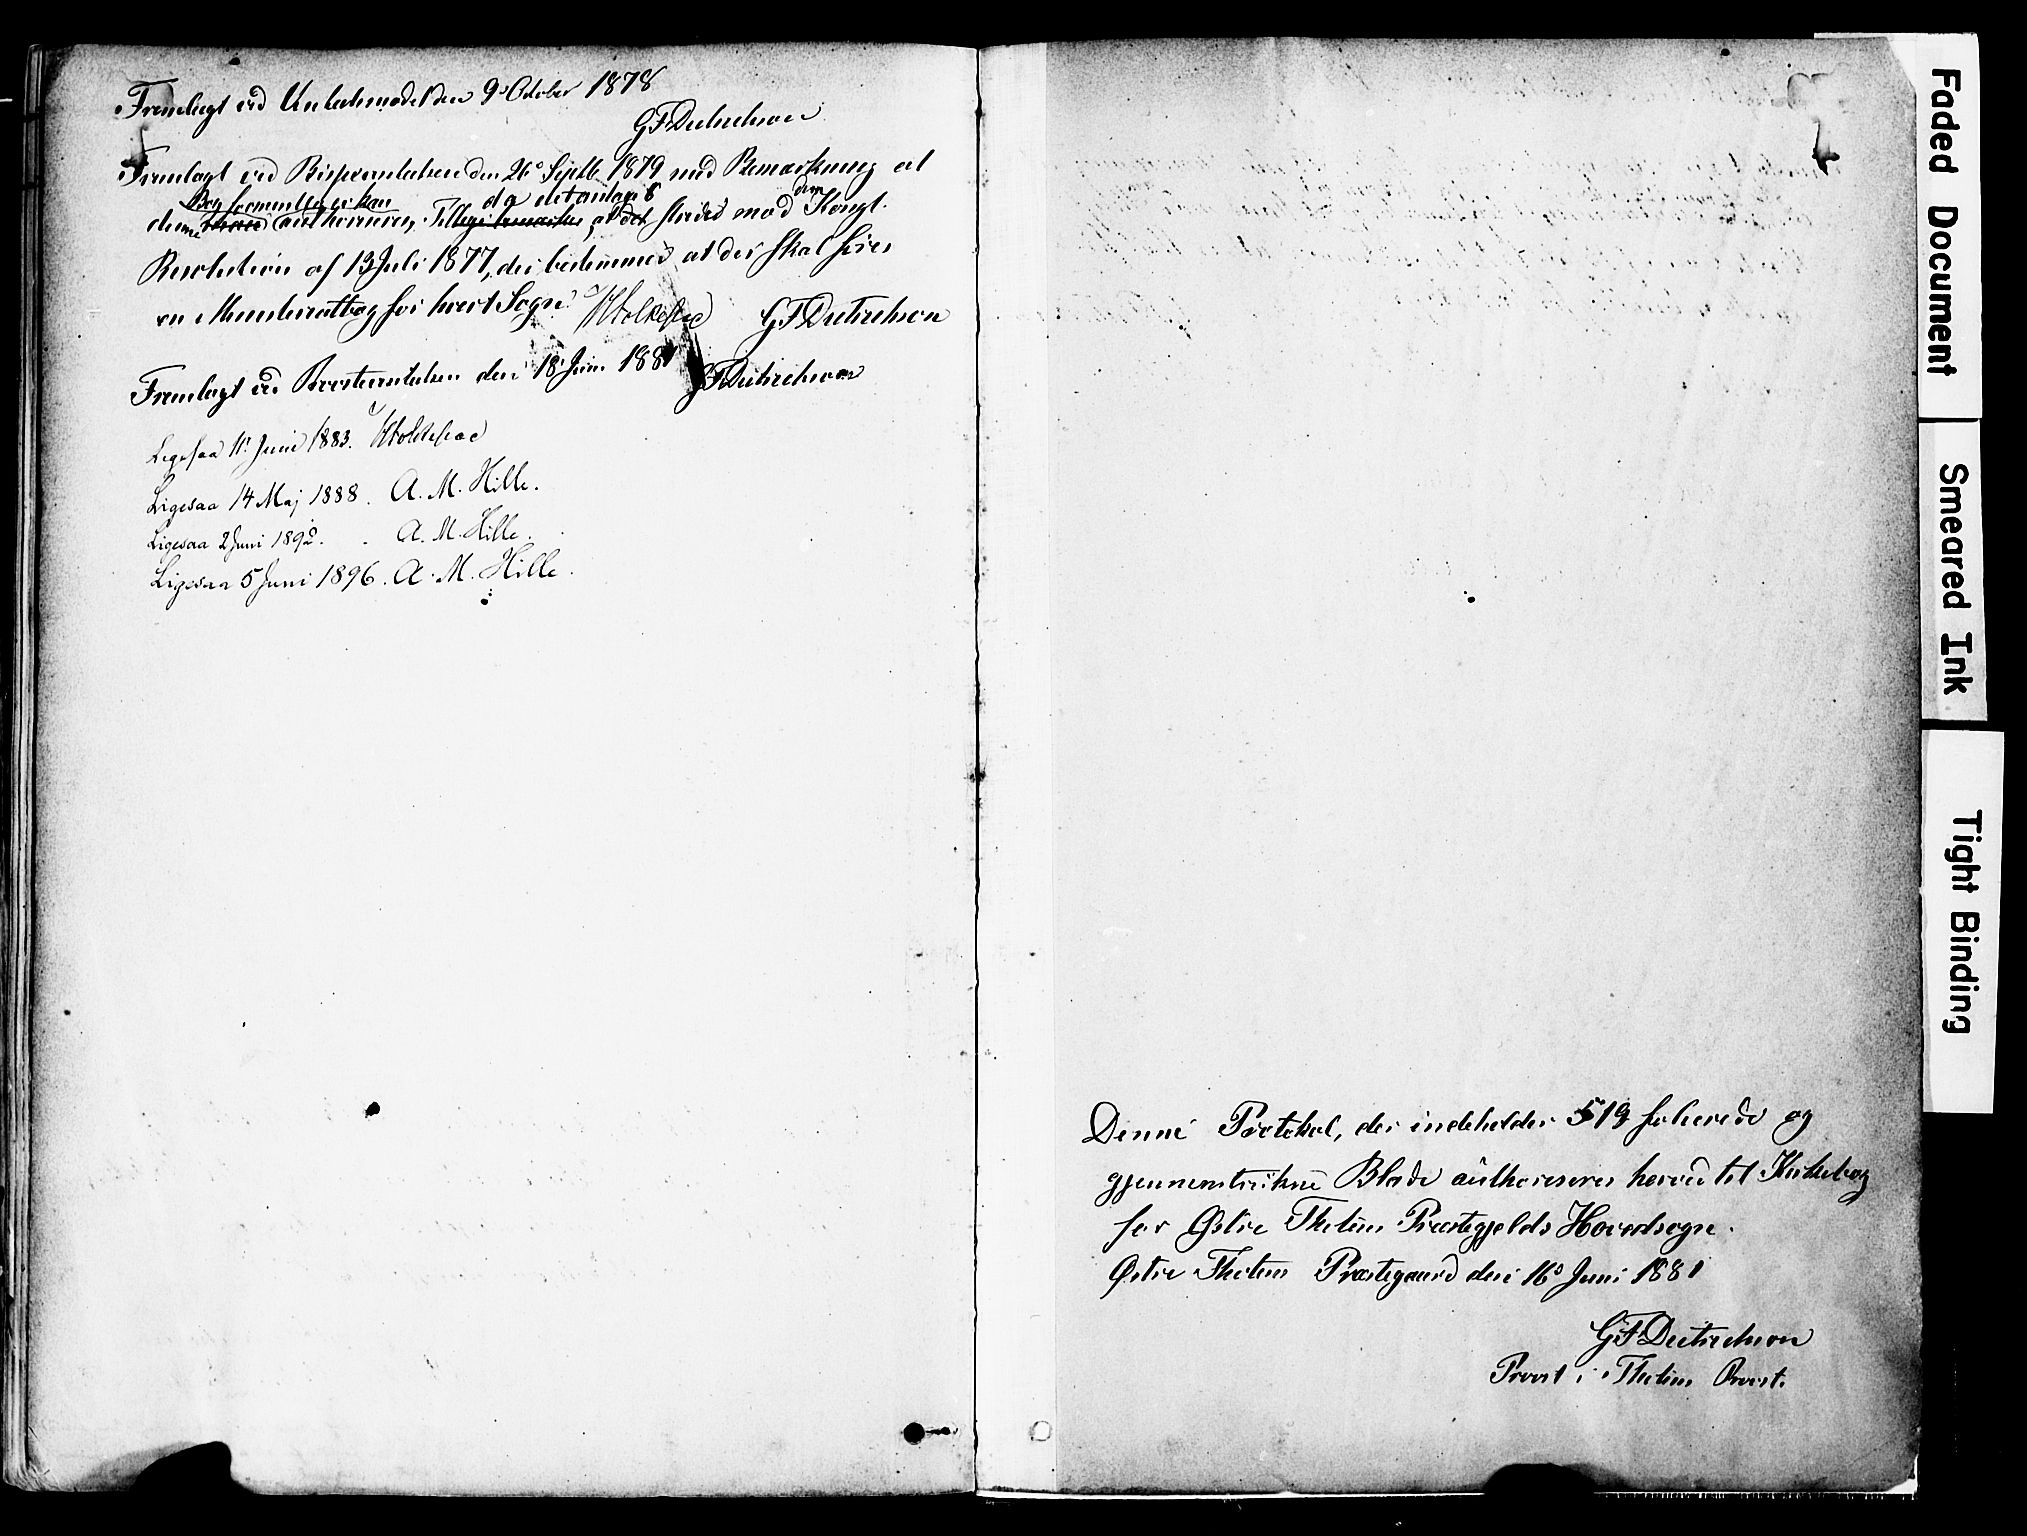 Fremlagt ved Kalentemødet den 9de Oktober 1878
G F Dietrichson
Fremlagt ved Bispevisitatsen den 26de Septbr 1879 med Bemærkning at
Bog formentlig ei kan da det antages dem
denne authoriseres, at det strider mod Kongl.
Resolution af 13 Juli 1877, der bestemmer at der skal føres
en Ministerialbog for hvert Sogn. G F Dietrichson
Fremlagt ved Provstevisitatsen den 18 Juni 1881 G F Dietrichson
Ligesaa 11 Juni 1883.
Ligesaa 14 Maj 1888. A. M. Hille.
Ligesaa 2 Juni 1892. A. M. Hille.
Ligesaa 5 Juni 1896. A. M. Hille.
Denne Protokol, der indeholder 519 folierede og
gjennemtrukne Blade authoriseres herved til Kirkebog
for Østre Thotens Præstegjelds Hovedsogn.
Østre Thotens Præstegaard den 16de Juni 1881
G F Dietrichson
Provst i Thotens Provsti.
Faded Document
Smeared Ink
Tight Binding